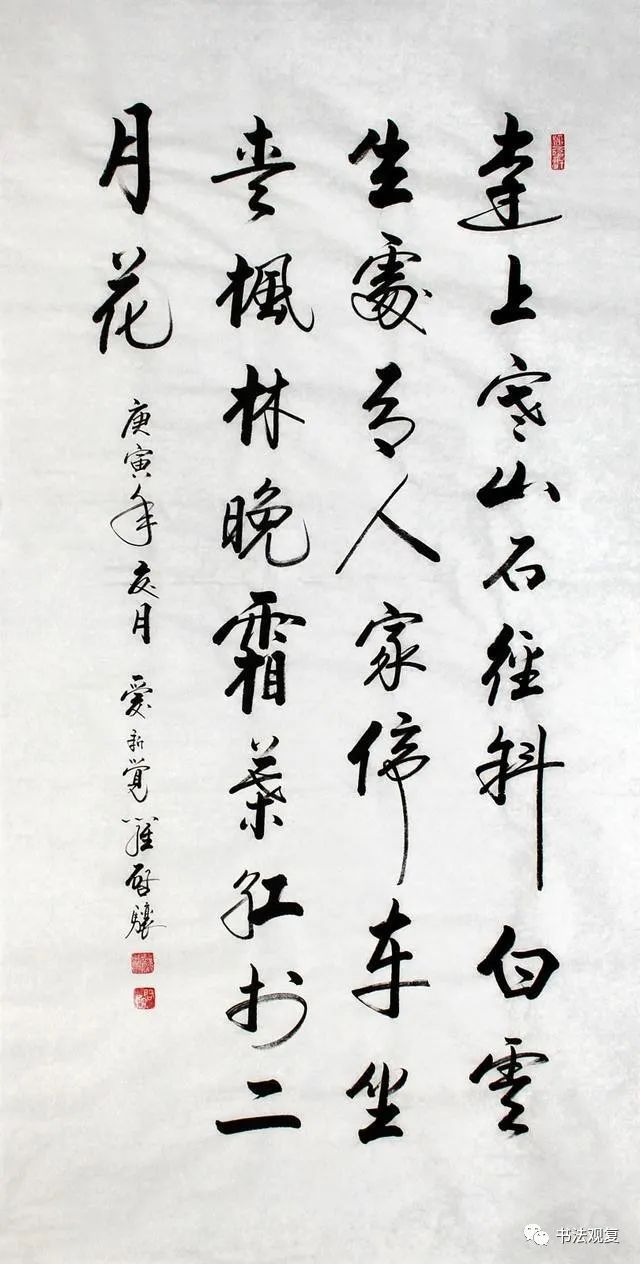 遠上寒山石徑斜白雲
生處有人家停車坐
愛楓林晚霜葉紅於二
月花
庚寅年夏月 愛新覺羅啟驤
书法观复